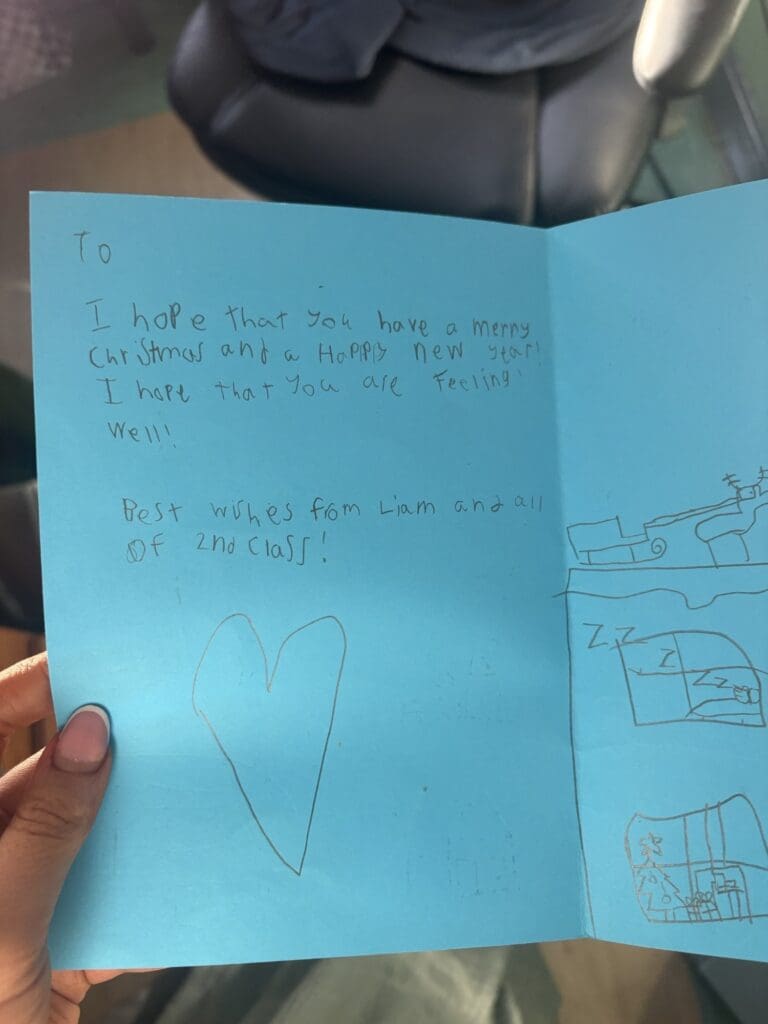 To
I hope that you have a merry
Christmas and a Happy new year!
I hope that you are Feeling
well!
Best wishes from Liam and all
of 2nd Class!
Z Z
Z
Z z